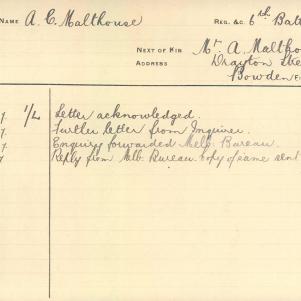 NAME A. C. Malthouse REG. &C. 6th Bat
NEXT OF KIN Mr. A. Maltho
ADDRESS Drayton Stre
Bowden
1/4 Letter acknowledged.
7 Further letter from Inquirer.
7 Enquiry forwarded Melb. Bureau.
7 Reply from Melb. Bureau. Copy of same sent